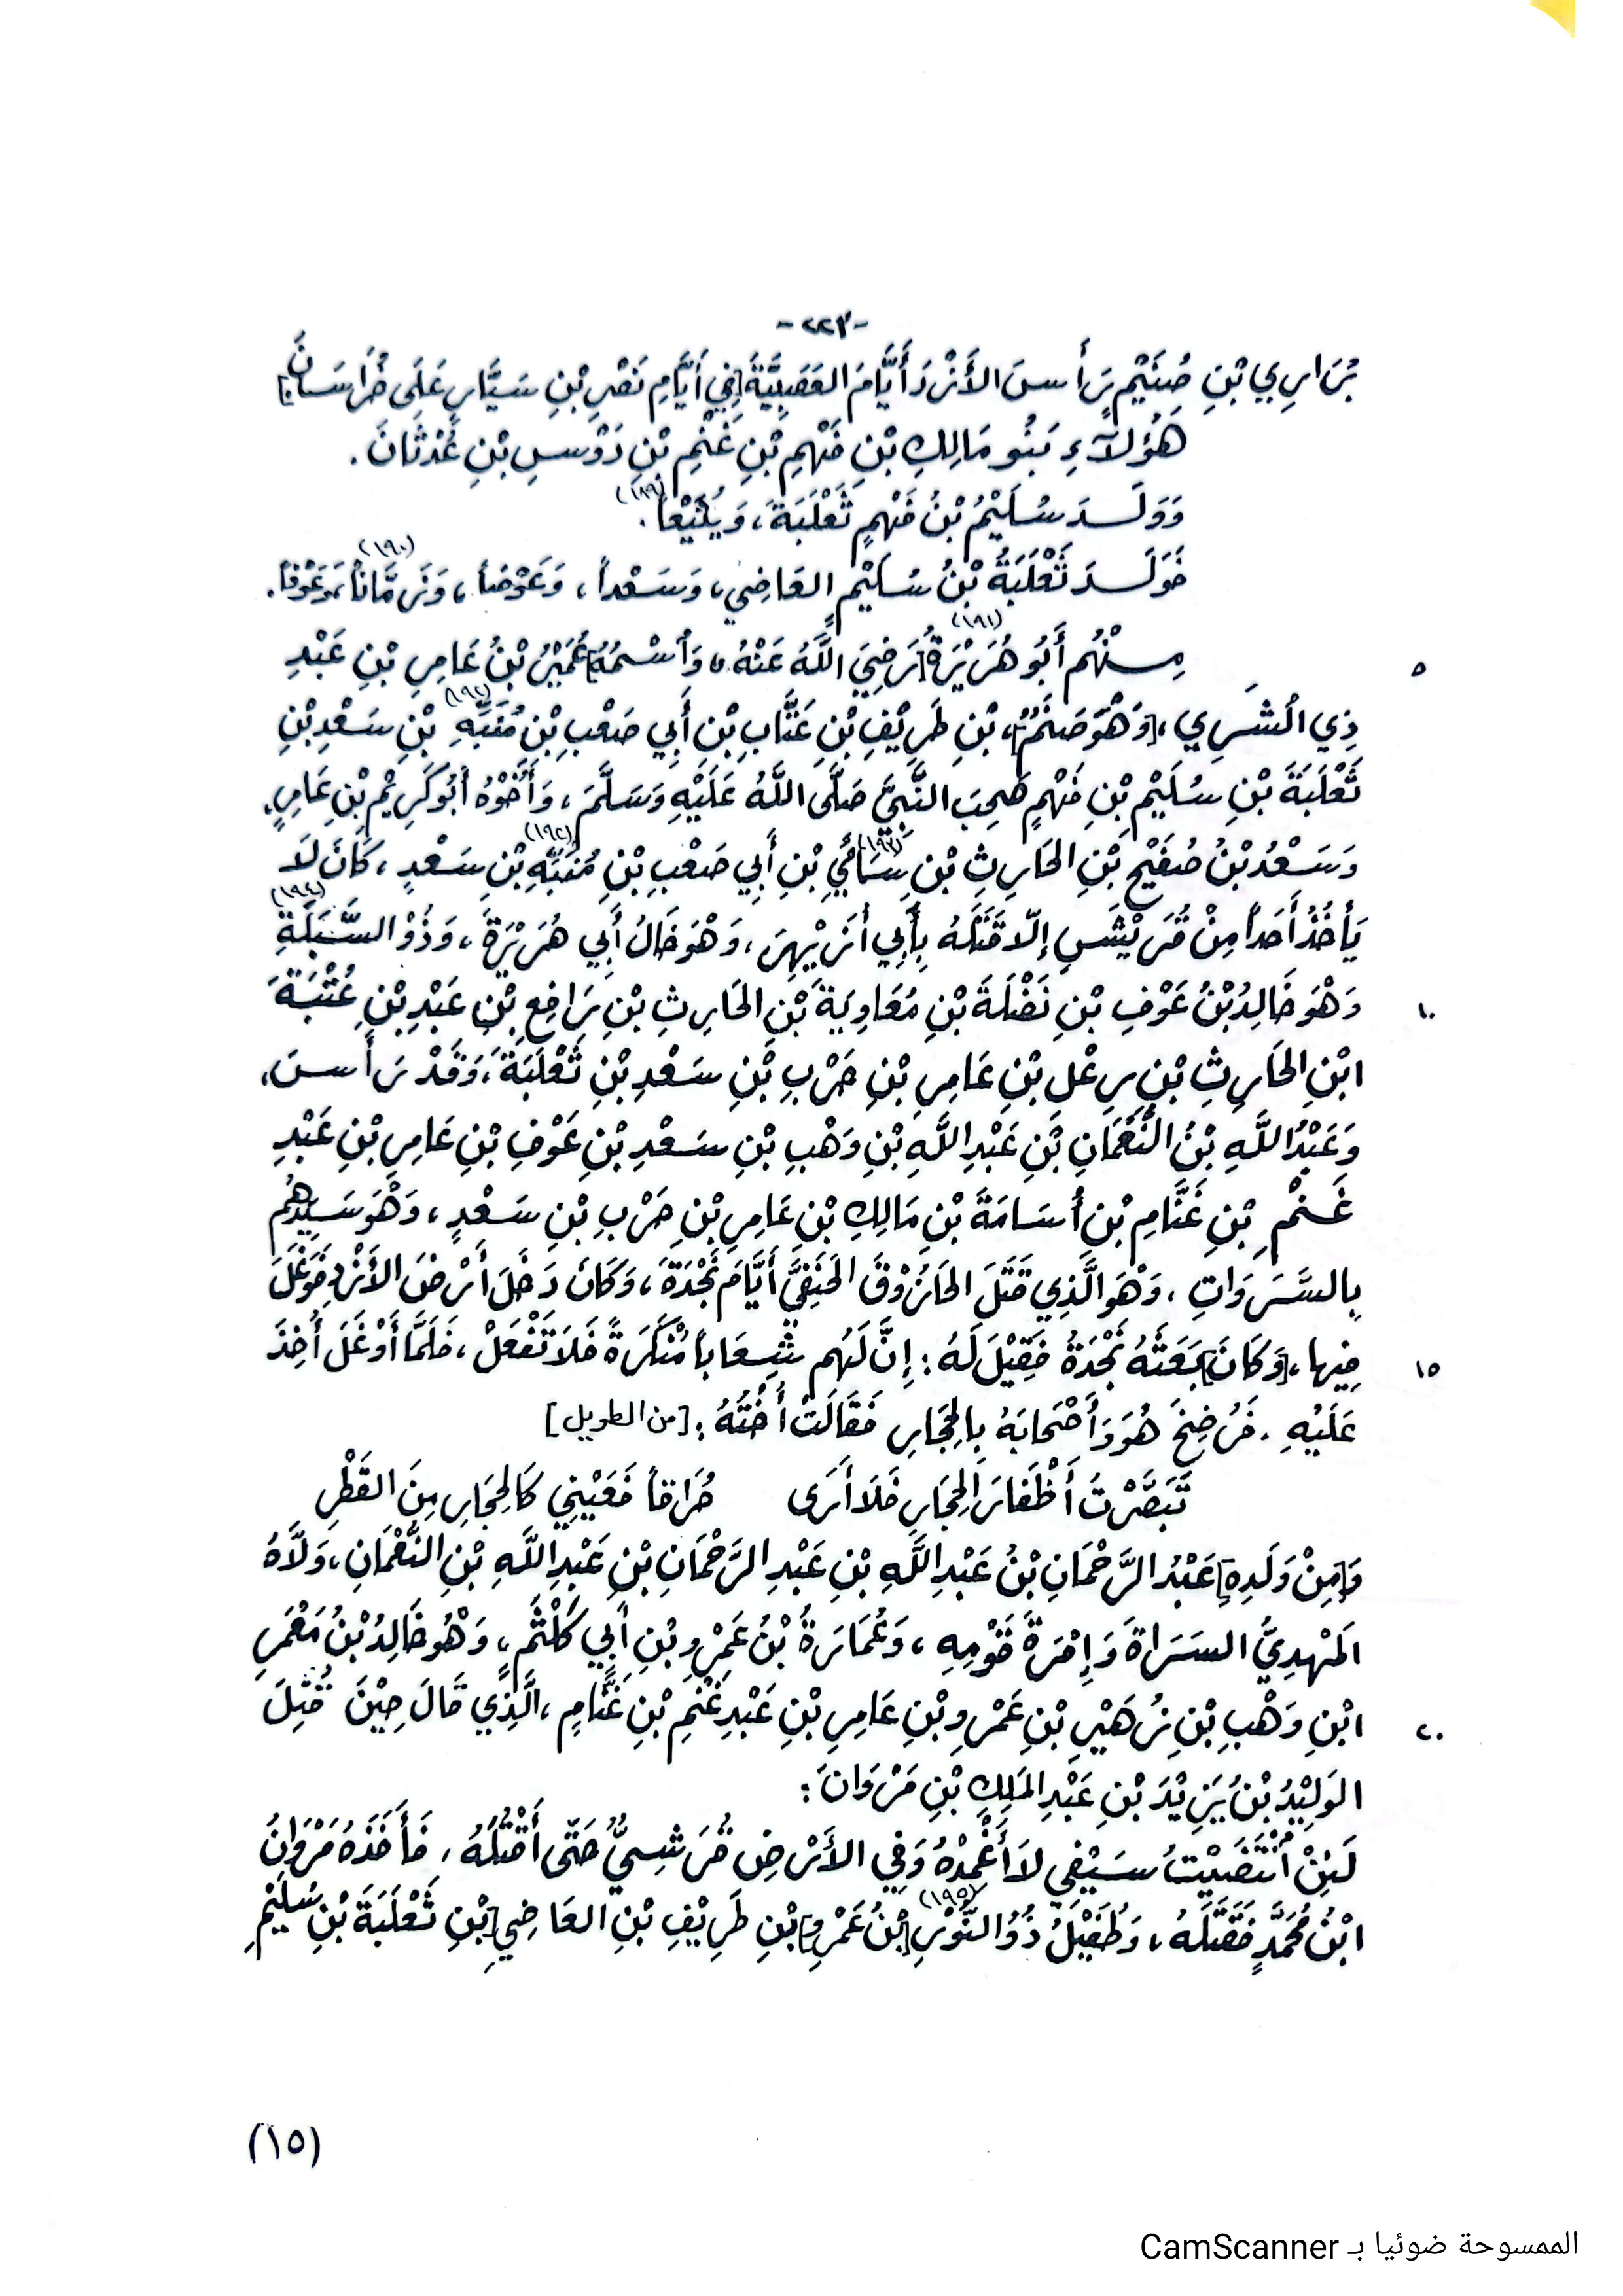 -٢٢٣-
بُرَارِي بْنِ صُنَيْمٍ رَأَسَ الأَزْدَ أَيَّامَ العَصَبِيَّةِ [فِي أَيَّامِ نَصْرِ بْنِ سَيَّارِ عَلَى خُرَاسَانَ]
هَؤُلَآءِ بَنُو مَالِكِ بْنِ فَهْمِ بْنِ غَنْمِ بْنِ دَوْسِ بْنِ عُدْثَانَ .
وَوَلَدَ سُلَيْمُ بْنُ فَهْمٍ ثَعْلَبَةَ ، وَيُثَيْعاً (١٨٩) .
فَوَلَدَ ثَعْلَبَةُ بْنُ سُلَيْمٍ العَاضِي ، وَسَعْداً ، وَعَوْضاً ، وَزَمَّاناً (١٩٠) ، وَعَوْفاً .
مِنْهُم أَبُو هُرَيْرَةَ (١٩١) [رَضِيَ اللَّهُ عَنْهُ ، وَاُسْمُهُ] عُمَيْرُ بْنُ عَامِرِ بْنِ عَبْدِ
٥
ذِي الْشَرِي ، [وَهْوَ صَنَمٌ] ، بْنِ طَرِيْفِ بْنِ عَتَّابِ بْنِ أَبِي صَعْبِ بْنِ مُنَبِّهِ (١٩٢) بْنِ سَعْدِ بْنِ
ثَعْلَبَةَ بْنِ سُلَيْمِ بْنِ فَهْمٍ صَحِبَ النَّبِيَّ صَلَّى اللَّهُ عَلَيْهِ وَسَلَّمَ ، وَأَخُوْهُ أَبُو كَرِيْمِ بْنِ عَامِرٍ ،
وَسَعْدُ بْنُ صُفَيْحِ بْنِ الحَارِثِ بْنِ سَائِيِ (١٩٣) بْنِ أَبِي صَعْبِ بْنِ مُنَبِّهِ (١٩٢) بْنِ سَعْدٍ ، كَانَ لَا
يَأْخُذُ أَحَداً مِنْ قُرَيْشٍ إِلَّا قَتَلَهُ بِأَبِي أُزَيْهِرَ ، وَهْوَ خَالُ أَبِي هُرَيْرَةَ ، وَذُوْ السَّبَلَةِ (١٩٤)
وَهْوَ خَالِدُ بْنُ عَوْفِ بْنِ نَضْلَةَ بْنِ مُعَاوِيَةَ بْنِ الحَارِثِ بْنِ رَافِعِ بْنِ عَبْدِ بْنِ عُتْبَةَ
١٠
ابْنِ الحَارِثِ بْنِ رِعْلِ بْنِ عَامِرِ بْنِ حَرْبِ بْنِ سَعْدِ بْنِ ثَعْلَبَةَ ، وَقَدْ رَأَسَ ،
وَعَبْدُ اللَّهِ بْنُ النُّعْمَانِ بْنِ عَبْدِ اللَّهِ بْنِ وَهْبِ بْنِ سَعْدِ بْنِ عَوْفِ بْنِ عَامِرِ بْنِ عَبْدِ
غَنْمِ بْنِ غَنَّامِ بْنِ أُسَامَةَ بْنِ مَالِكِ بْنِ عَامِرِ بْنِ حَرْبِ بْنِ سَعْدٍ ، وَهْوَ سَيِّدُهُم
بِالسَّرَوَاتِ ، وَهْوَ الَّذِي قَتَلَ الحَازُوْقَ الحَنَفِيَّ أَيَّامَ نَجْدَةَ ، وَكَانَ دَخَلَ أَرْضَ الأَزْدِ فَوَغَلَ
فِيها ، [وَكَانَ] بَعَثَهُ نَجْدَةُ فَقِيْلَ لَهُ : إِنَّ لَهُم شِعَاباً مُنْكَرَةً فَلَا تَفْعَلْ ، فَلَمَّا أَوْغَلَ أُخِذَ
١٥
عَلَيْهِ . فَرُضِخَ هُوَ وَأَصْحَابَهُ بِالحِجَارِ فَقَالَتْ أُخْتَهُ : [من الطويل]
تَبَصَّرْتُ أَظْفَارَ الحِجَارِ فَلَا أَرَى حُرَاقاً فَعَيْنِي كَالحِجَارِ مِنَ القَطْرِ
وَ[مِنْ وَلَدِهِ] عَبْدُ الرَّحْمَانِ بْنُ عَبْدِ اللَّهِ بْنِ عَبْدِ الرَّحْمَانِ بْنِ عَبْدِ اللَّهِ بْنِ النُّعْمَانِ ، وَلَّاهُ
المَهْدِيُّ السَرَاةَ وَإِمْرَةَ قَوْمِهِ ، وَعُمَارَةُ بْنُ عَمْرِو بْنِ أَبِي كَلْثَمٍ ، وَهْوَ خَالِدُ بْنُ مَعْمَرِ
ابْنِ وَهْبِ بْنِ زُهَيْرِ بْنِ عَمْرِو بْنِ عَامِرِ بْنِ عَبْدِ غَنْمِ بْنِ غَنَّامٍ ، الَّذِي قَالَ حِيْنَ قُتِلَ
٢٠
الوَلِيْدُ بْنُ يَزِيْدَ بْنِ عَبْدِ المَلِكِ بْنِ مَرْوَانَ :
لَئِنْ اُنْتَضَيْتُ سَيْفِي لَا أُغْمِدُهُ وَفِي الأَرْضِ قُرَشِيٌّ حَتَّى أَقْتُلَهُ ، فَأَخَذَهُ مَرْوَانُ
ابْنُ مُحَمَّدٍ فَقَتَلَهُ ، وَطُفَيْلُ ذُوْ النُّوْرِ (١٩٥) [بْنُ عَمْرِو] بْنِ طَرِيْفِ بْنِ العَاضِي [بْنِ ثَعْلَبَةَ بْنِ سُلَيْمِ
(١٥)
الممسوحة ضوئيا بـ CamScanner